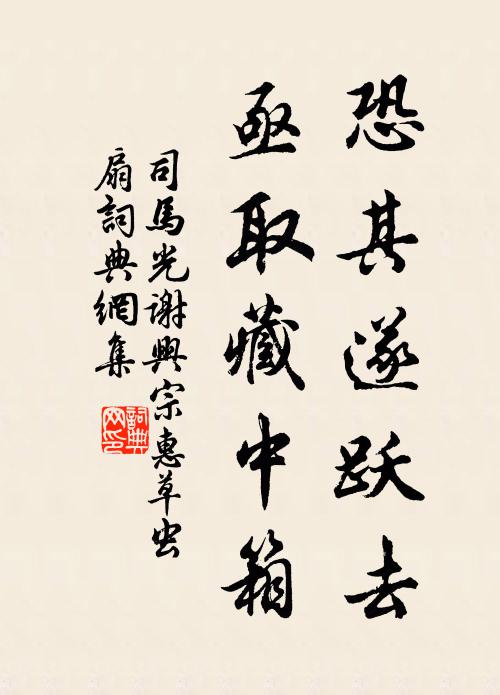 恐其遂跃去
亟取藏中箱
司馬光谢興宗惠草虫
扇詞典網集
詞典网印